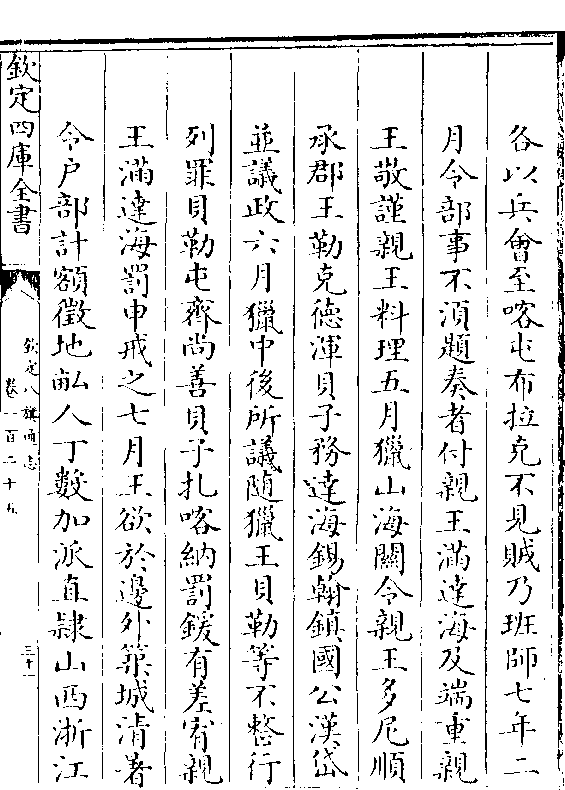 各以兵會至喀屯布拉克不見賊乃班師七年二
月令部事不湏題奏者付親王滿達海及端重親
王敬謹親王料理五月獵山海關令親王多尼順
承郡王勒克德渾貝子務達海錫翰鎮國公漢岱
並議政六月獵中後所議隨獵王貝勒等不整行
列罪貝勒屯齊尚善貝子扎喀納罰鍰有差宥親
王滿達海罰申戒之七月王欲於邊外築城清暑
令户部計額徵地畝人丁數加派直隸山西浙江
欽定四庫全書
欽定八旗通志
卷一百二十九
三十一